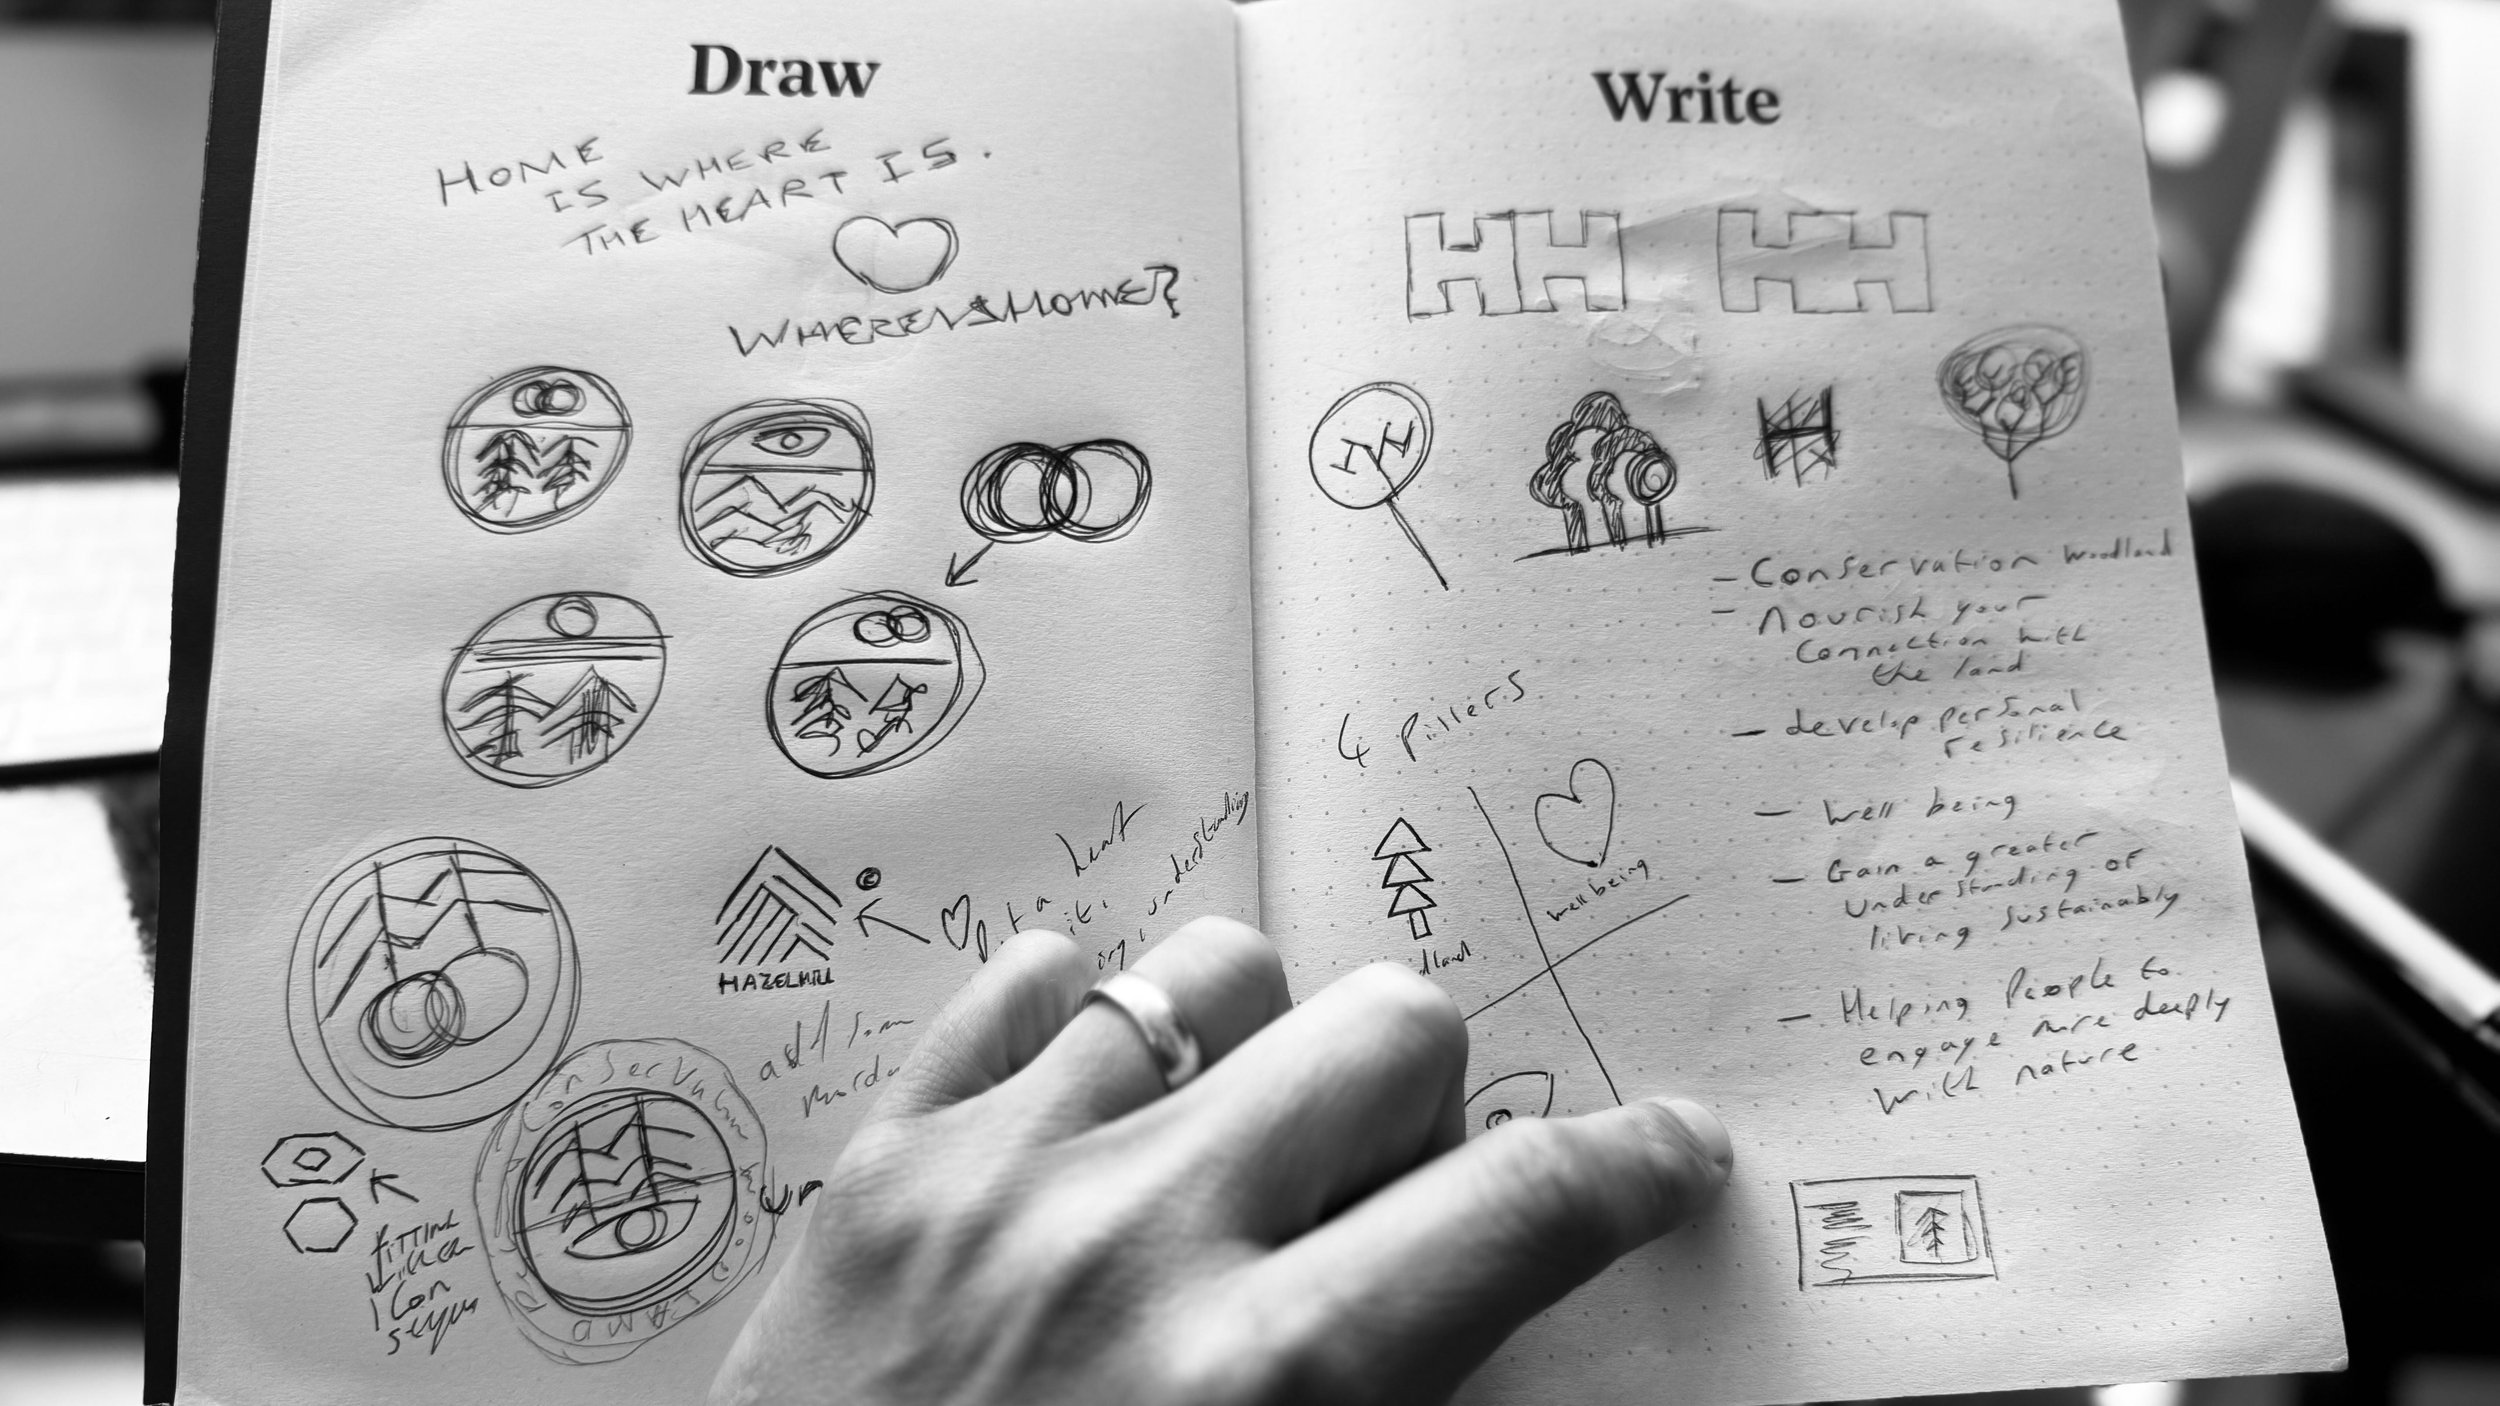 Draw
HOME
IS WHERE
THE HEART IS.
WHERE IS HOME?
HAZELHILL
Put a heart
it,
understanding
add some
fitting
within
icon
Conservation
LAND
Write
HH HH
- Conservation woodland
- nourish your
connection with
the land
- develop personal
resilience
- Well being
- Gain a greater
understanding of
living sustainably
- Helping People to
engage more deeply
with nature
4 Pillers
Well being
dland